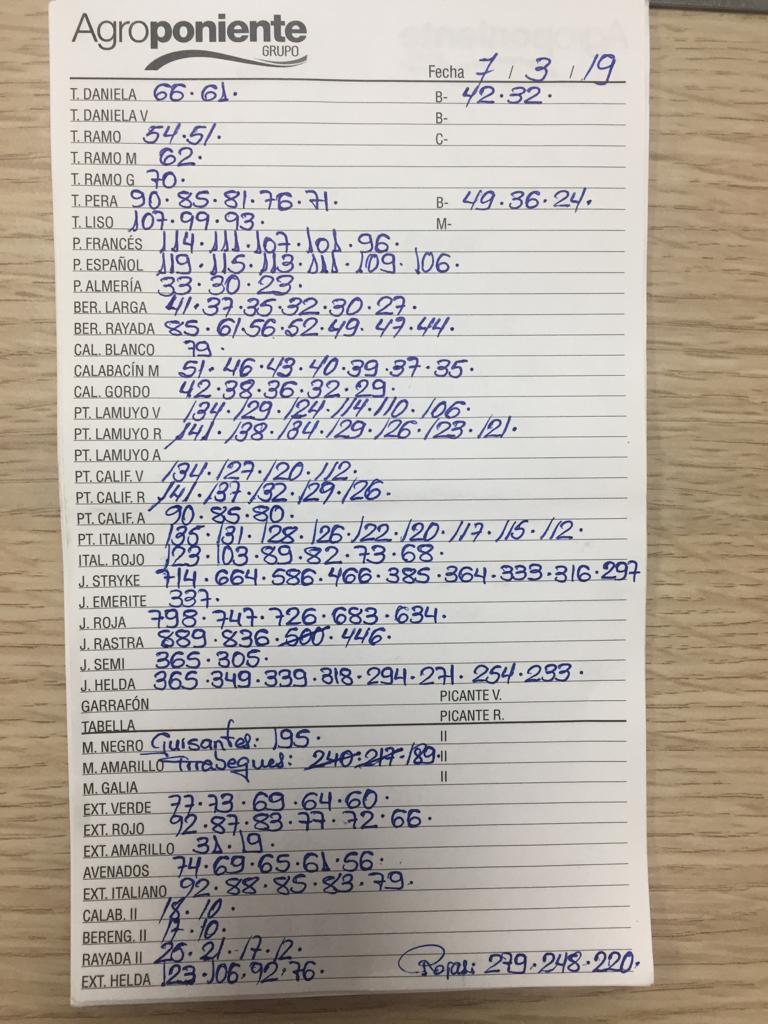 Agroponiente
GRUPO
Fecha 7 / 3 / 19
T. DANIELA 66·61· B- 42·32·
T. DANIELA V B-
T. RAMO 54·51· C-
T. RAMO M 62·
T. RAMO G 70·
T. PERA 90·85·81·76·71· B- 49·36·24·
T. LISO 107·99·93· M-
P. FRANCÉS 114·111·107·101·96·
P. ESPAÑOL 119·115·113·111·109·106·
P. ALMERÍA 33·30·23·
BER. LARGA 41·37·35·32·30·27·
BER. RAYADA 85·61·56·52·49·47·44·
CAL. BLANCO 79·
CALABACÍN M 51·46·43·40·39·37·35·
CAL. GORDO 42·38·36·32·29·
PT. LAMUYO V 134·129·124·114·110·106·
PT. LAMUYO R 141·138·134·129·126·123·121·
PT. LAMUYO A
PT. CALIF. V 134·127·120·112·
PT. CALIF. R 141·137·132·129·126·
PT. CALIF. A 90·85·80·
PT. ITALIANO 135·131·128·126·122·120·117·115·112·
ITAL. ROJO 123·103·89·82·73·68·
J. STRYKE 714·664·586·466·385·364·333·316·297
J. EMERITE 337·
J. ROJA 798·747·726·683·634·
J. RASTRA 889·836·500·446·
J. SEMI 365·305·
J. HELDA 365·349·339·318·294·271·254·233·
GARRAFÓN PICANTE V.
TABELLA PICANTE R.
M. NEGRO Guisantes: 195· II
M. AMARILLO Tirabeques: 240·217·189· II
M. GALIA II
EXT. VERDE 77·73·69·64·60·
EXT. ROJO 92·87·83·77·72·66·
EXT. AMARILLO 31·19·
AVENADOS 74·69·65·61·56·
EXT. ITALIANO 92·88·85·83·79·
CALAB. II 18·10·
BERENG. II 17·10·
RAYADA II 26·21·17·12·
EXT. HELDA 123·106·92·76· Rojas: 279·248·220·